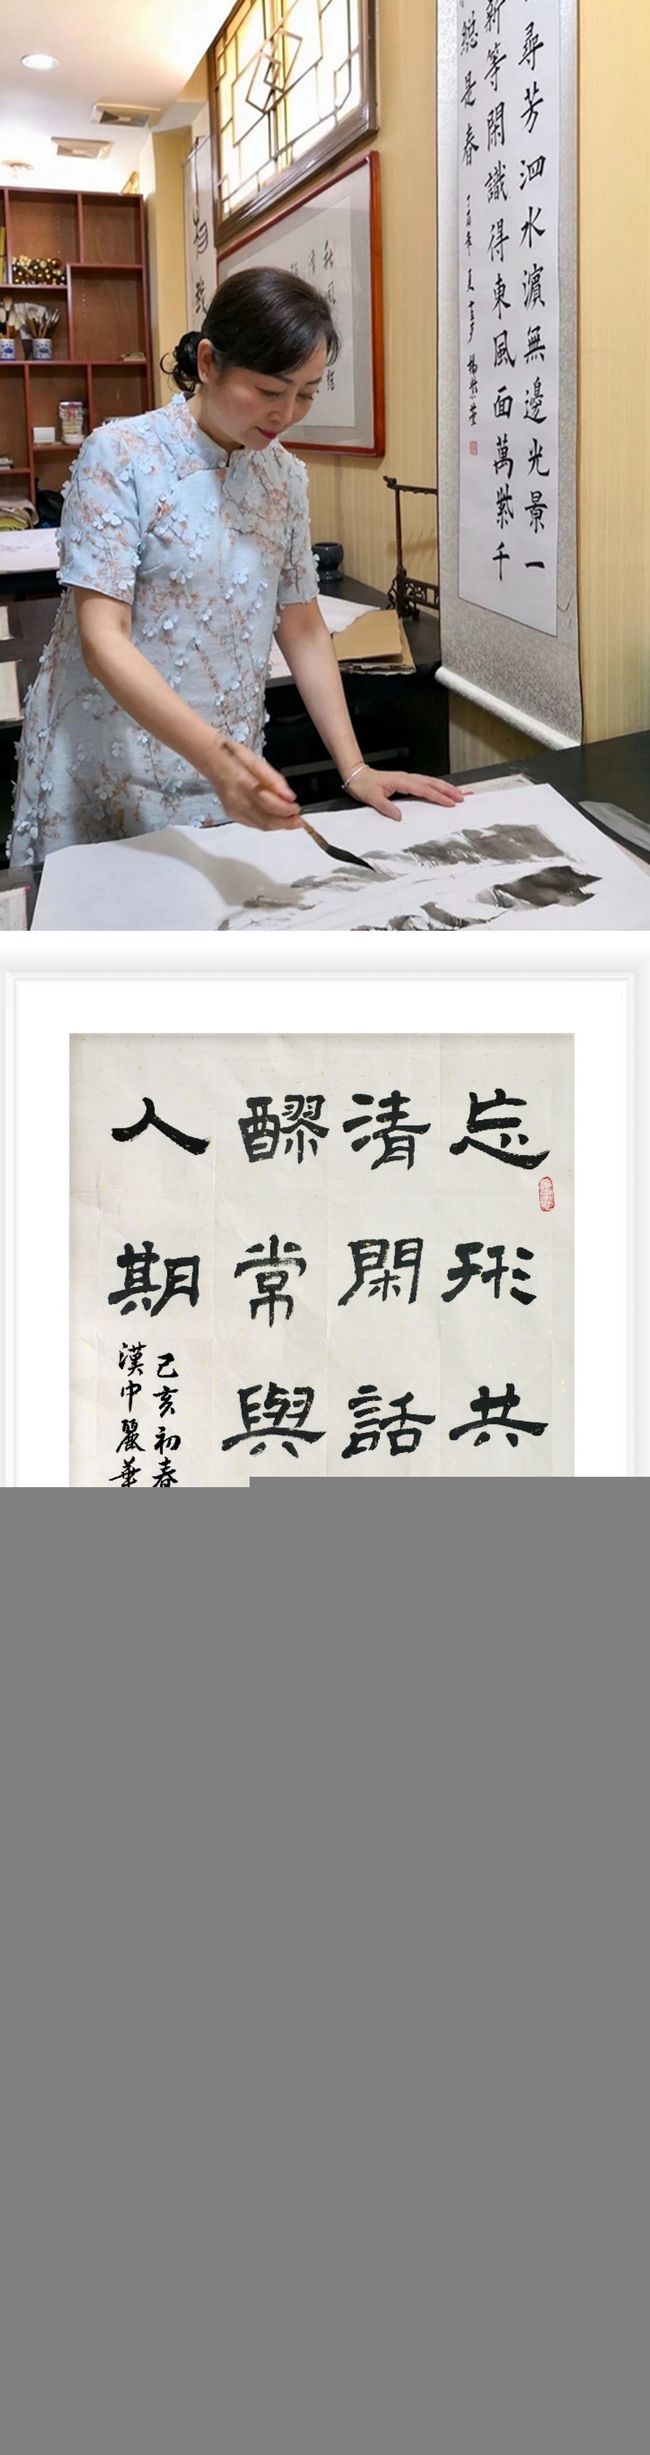 尋芳泗水濵無邊光景一
新等閑識得東風面萬紫千
總是春
秋風
忘形共
清閑話
醪常與
人期
己亥初春
漢中麗華